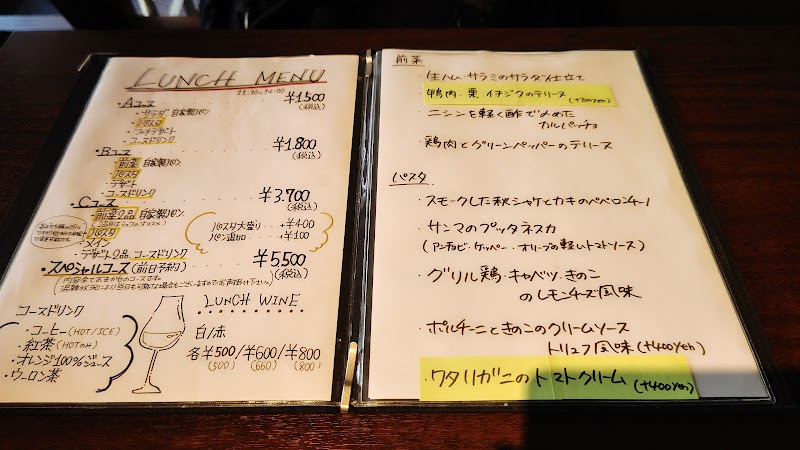 LUNCH MENU
11:30~14:00
・Aコース ¥1,500
(税込)
・サラダ 自家製パン
・パスタ
・プチデザート
・コースドリンク
・Bコース ¥1,800
(税込)
・前菜 自家製パン
・パスタ
・デザート
・コースドリンク
・Cコース ¥3,700
(税込)
・前菜2品 自家製パン
・パスタ
・メイン
・デザート2品 コースドリンク
パスタ大盛り …+¥400
パン追加 …+¥100
・スペシャルコース(前日予約) ¥5,500
(税込)
内容全ておまかせのコースです。
コースドリンク
・コーヒー(HOT/ICE)
・紅茶(HOTのみ)
・オレンジ100%ジュース
・ウーロン茶
LUNCH WINE
白/赤
各¥500/¥600/¥800
(500) (660) (800)
前菜
・生ハム・サラミのサラダ仕立て
・鴨肉・栗 イチジクのテリーヌ(+200yen)
・ニシンを軽く酢で〆めた
カルパッチョ
・鶏肉とグリーンペッパーのテリーヌ
パスタ
・スモークした秋シャケとカキのペペロンチーノ
・サンマのプッタネスカ
(アンチョビ・ケッパー・オリーブの軽いトマトソース)
・グリル鶏・キャベツ・きのこ
のレモンチーズ風味
・ポルチーニときのこのクリームソース
トリュフ風味(+400yen)
・ワタリガニのトマトクリーム(+400yen)